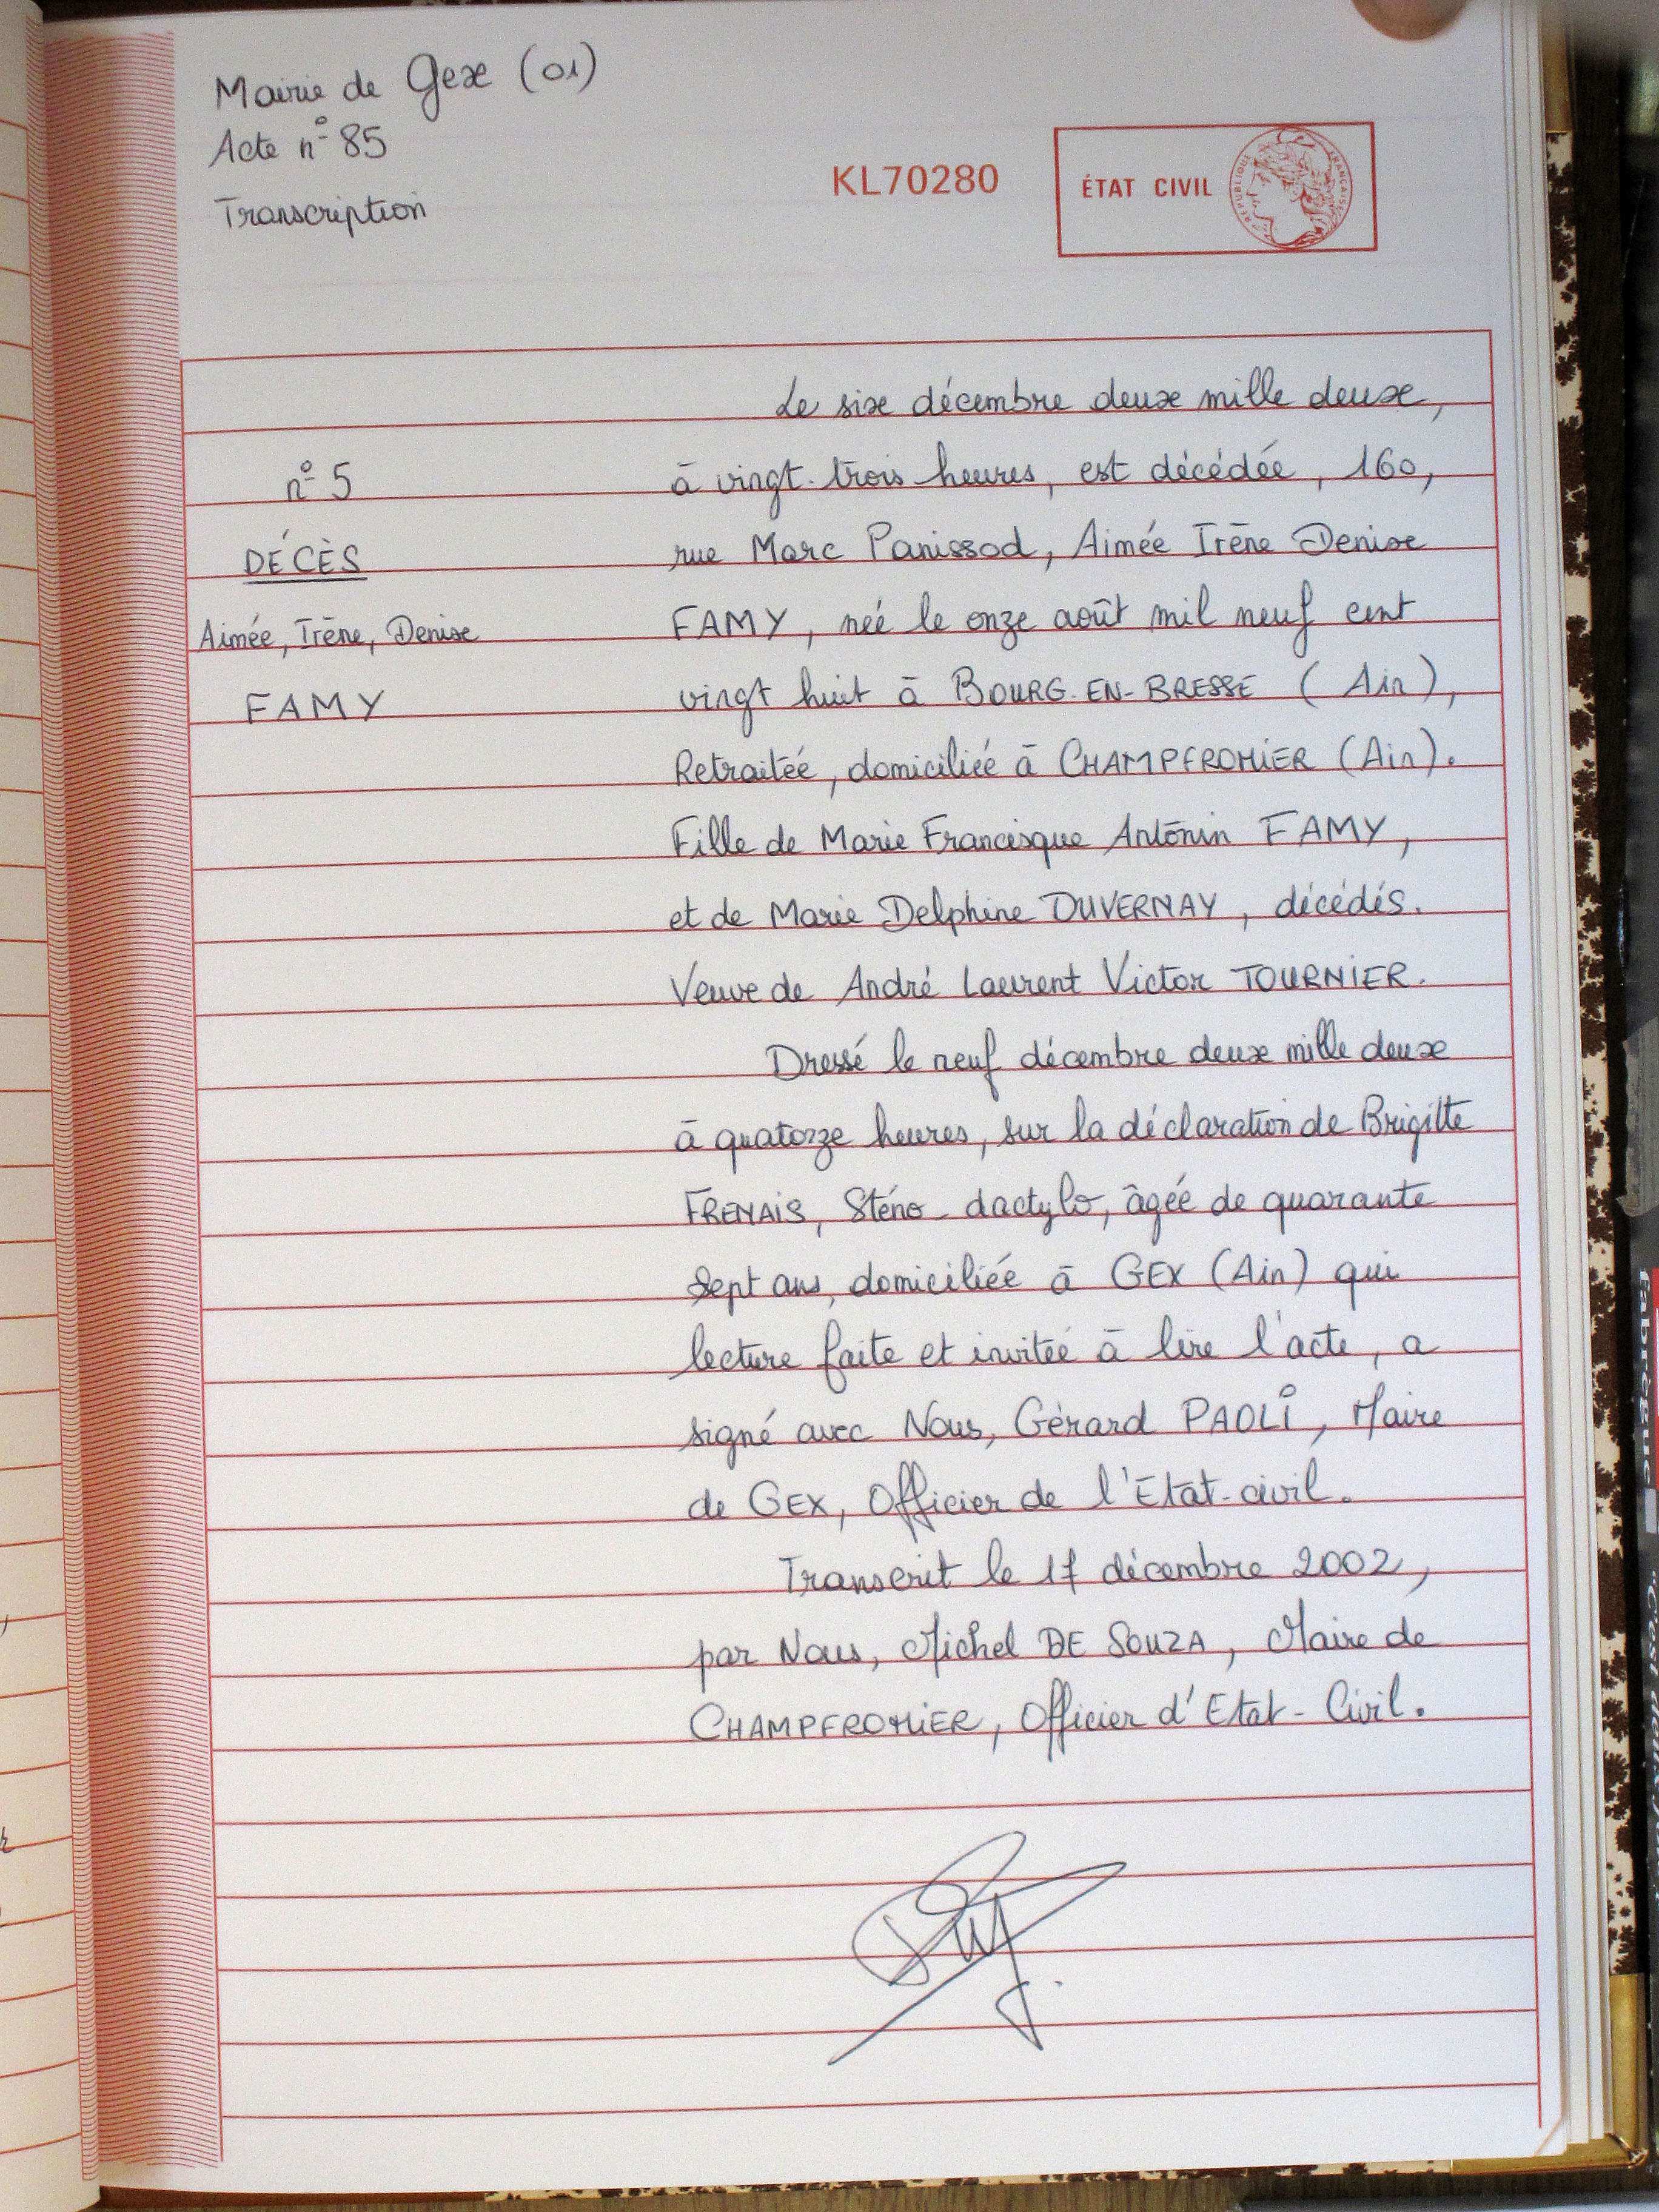 Mairie de Gex (01)
Acte n° 85
Transcription
KL70280
ÉTAT CIVIL
RÉPUBLIQUE FRANÇAISE
n° 5
DÉCÈS
Aimée, Irène, Denise
FAMY
Le six décembre deux mille deux,
à vingt-trois heures, est décédée, 160,
rue Marc Panissod, Aimée Irène Denise
FAMY, née le onze août mil neuf cent
vingt huit à BOURG-EN-BRESSE (Ain),
Retraitée, domiciliée à CHAMPFROMIER (Ain).
Fille de Marie Francisque Antonin FAMY,
et de Marie Delphine DUVERNAY, décédés.
Veuve de André Laurent Victor TOURNIER.
Dressé le neuf décembre deux mille deux
à quatorze heures, sur la déclaration de Brigitte
FRENAIS, Sténo-dactylo, âgée de quarante
sept ans, domiciliée à GEX (Ain) qui
lecture faite et invitée à lire l'acte, a
signé avec Nous, Gérard PAOLI, Maire
de GEX, Officier de l'Etat-civil.
Transcrit le 17 décembre 2002,
par Nous, Michel DE SOUZA, Maire de
CHAMPFROMIER, Officier d'Etat-Civil.